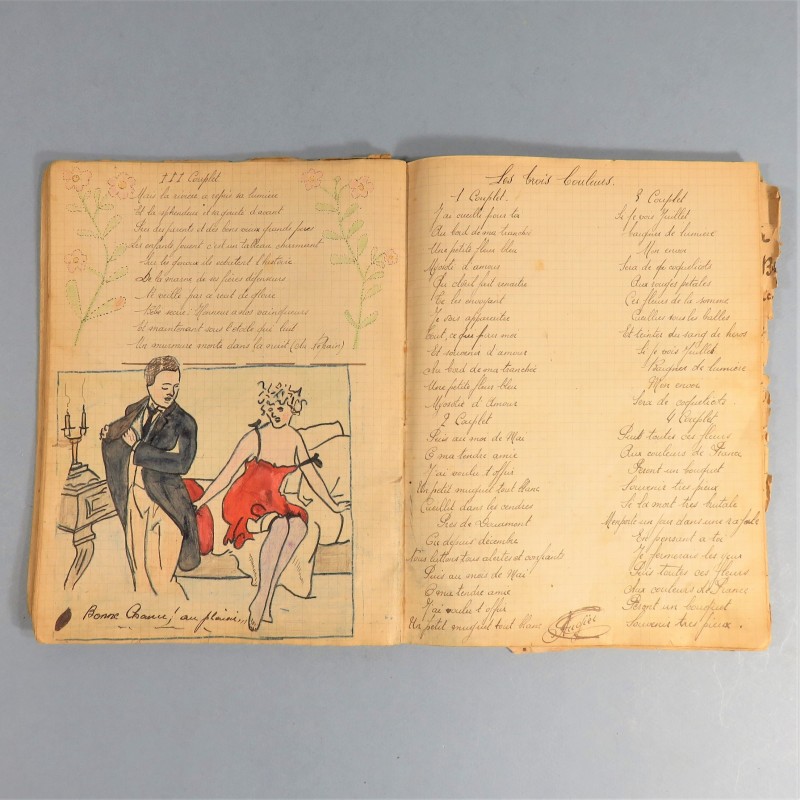 III Couplet
Mais la rivière a repris sa lumière
Et la splendeur d'avant
Sur ses parents et dès bons vieux grands pères
Les enfants font c'est un tableau charmant
Que les gueux ils récitent l'histoire
De la marne de ses fières défenseurs
Merveille pas a veut de gloire
Honneur a vos vainqueurs
Et maintenant sous l'étoile qui luit
Un murmure monte dans la nuit (Au Refrain)
Bonne Chance! au plaisir...
Les trois Couleurs.
1 Couplet.
J'ai cueilli pour toi
Au bord de ma tranchée
Une petite fleur bleu
Myosotis d'amour
Te les envoyant
Je vais apprendre
Tout, ce que pour moi
Est souvenir d'amour
Au bord de ma tranchée
Une petite fleur bleu
Myosotis d'Amour
2 Couplet
Puis au moi de Mai
O ma tendre amie
J'ai voulu t offrir
Un petit muguet tout blanc
Cueillit dans les cendres
Près de Douaumont
Ou depuis décembre
Nous luttons tous alertes et confiants
Puis au mois de Mai
O ma tendre amie
J'ai voulu t offrir
Un petit muguet tout blanc
3 Couplet
Si Je vois Juillet
Baignée de lumière
Mon envoi
Sera de coquelicots
Aux rouges pétales
Ces fleurs de la somme
Cueillies sous les balles
Et teintes du sang de héros
Si Je vois Juillet
Baignée de lumière
Mon envoi
Sera de coquelicots
4 Couplet
Puis toutes ces fleurs
Aux couleurs de France
Feront un bouquet
Souvenir tres pieux
Si la mort tres brutale
M'emporte un peu dans une rafale
En pensant a toi
Je fermerais les yeux
Puis toutes ces fleurs
Aux couleurs de France
Feront un bouquet
Souvenir tres pieux.